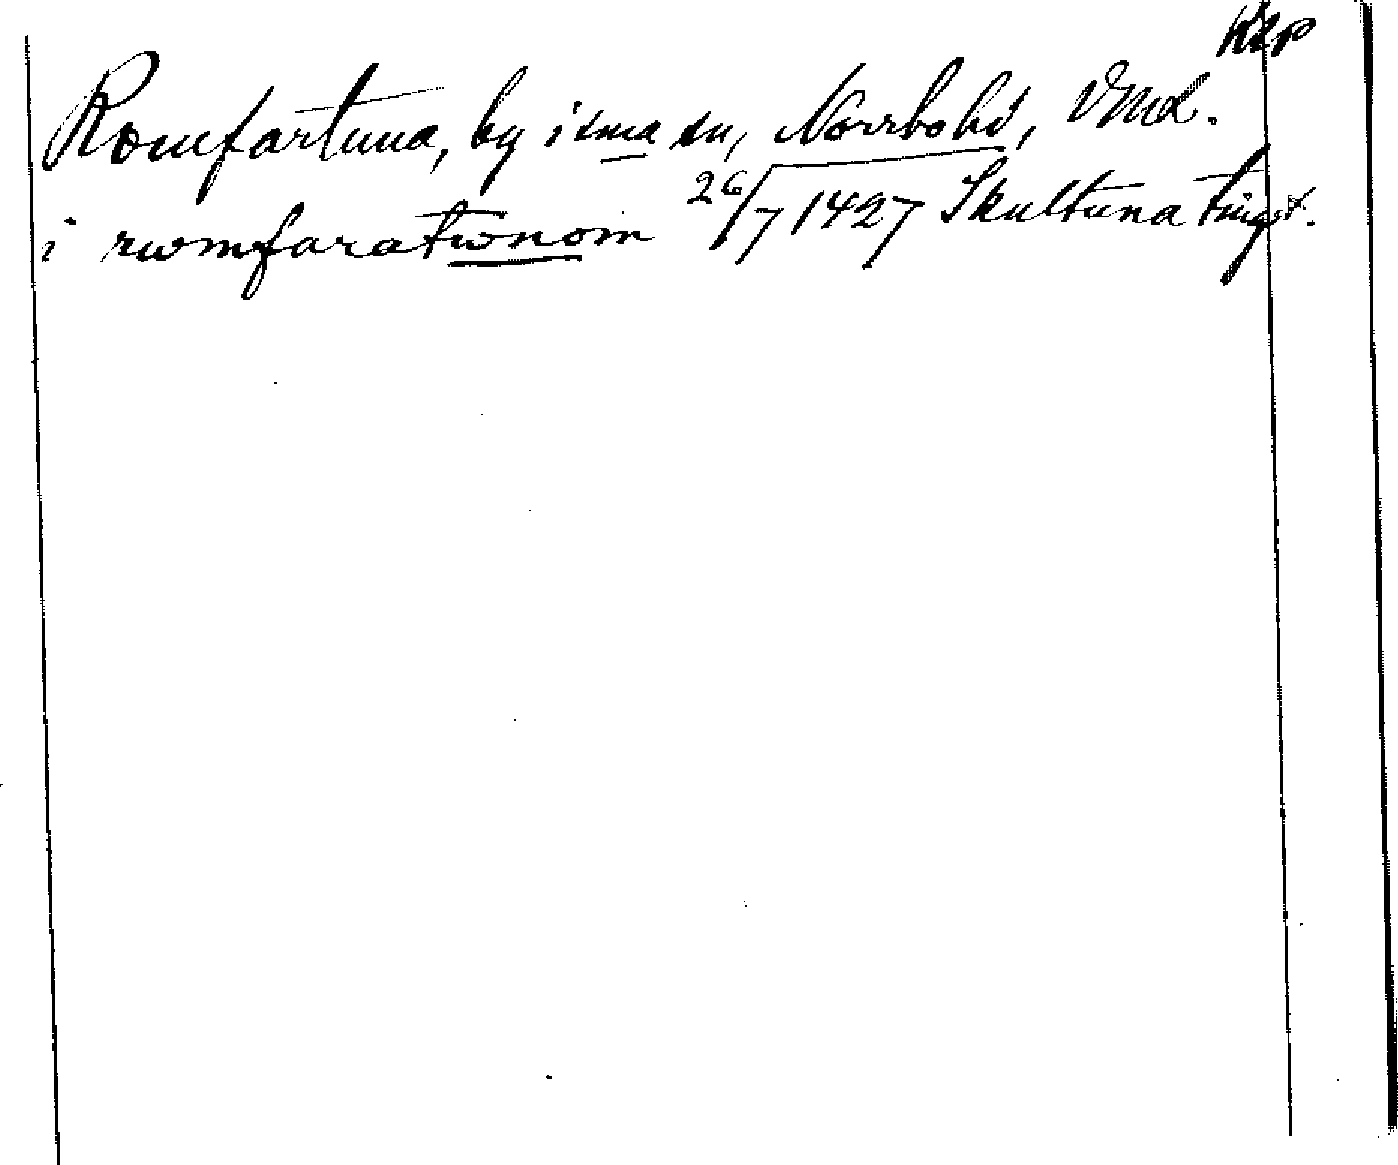 Romfartuna, by i sma sn, Norrbo hd, Vml.
i rwmfaratwnom 26/7 1427 Skultuna tingst.